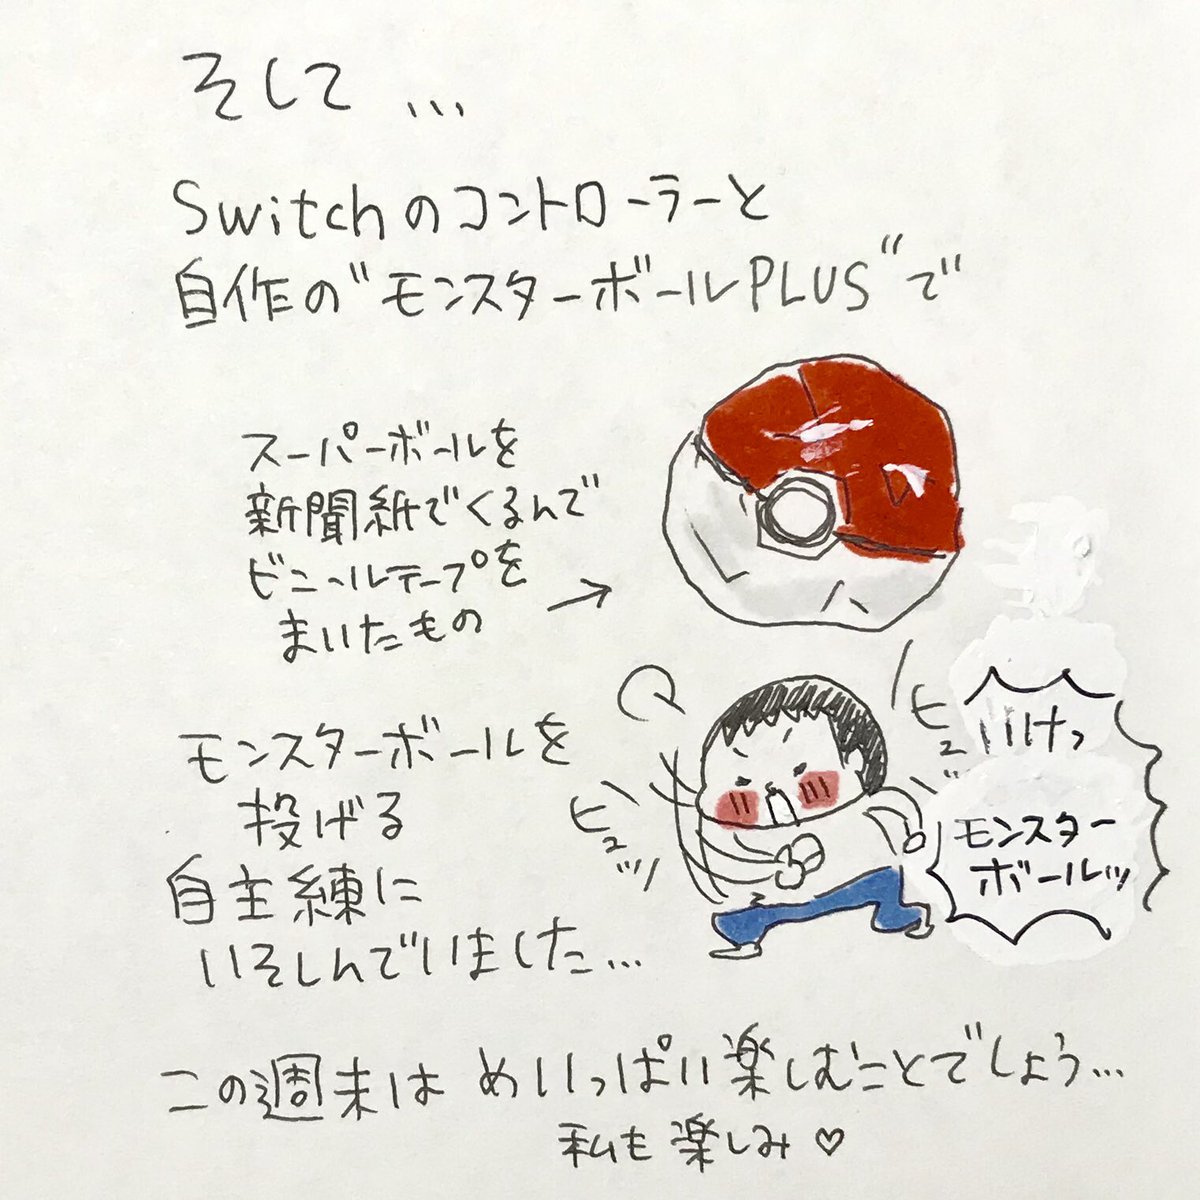 そして...
Switchのコントローラーと
自作の"モンスターボールPLUS"で
スーパーボールを
新聞紙でくるんで
ビニールテープを
まいたもの
→
モンスターボールを
投げる
自主練に
いそしんでいました...
ヒュッ
ヒュッ
いけっ
モンスター
ボールッ
この週末は めいっぱい楽しむことでしょう...
私も楽しみ♡